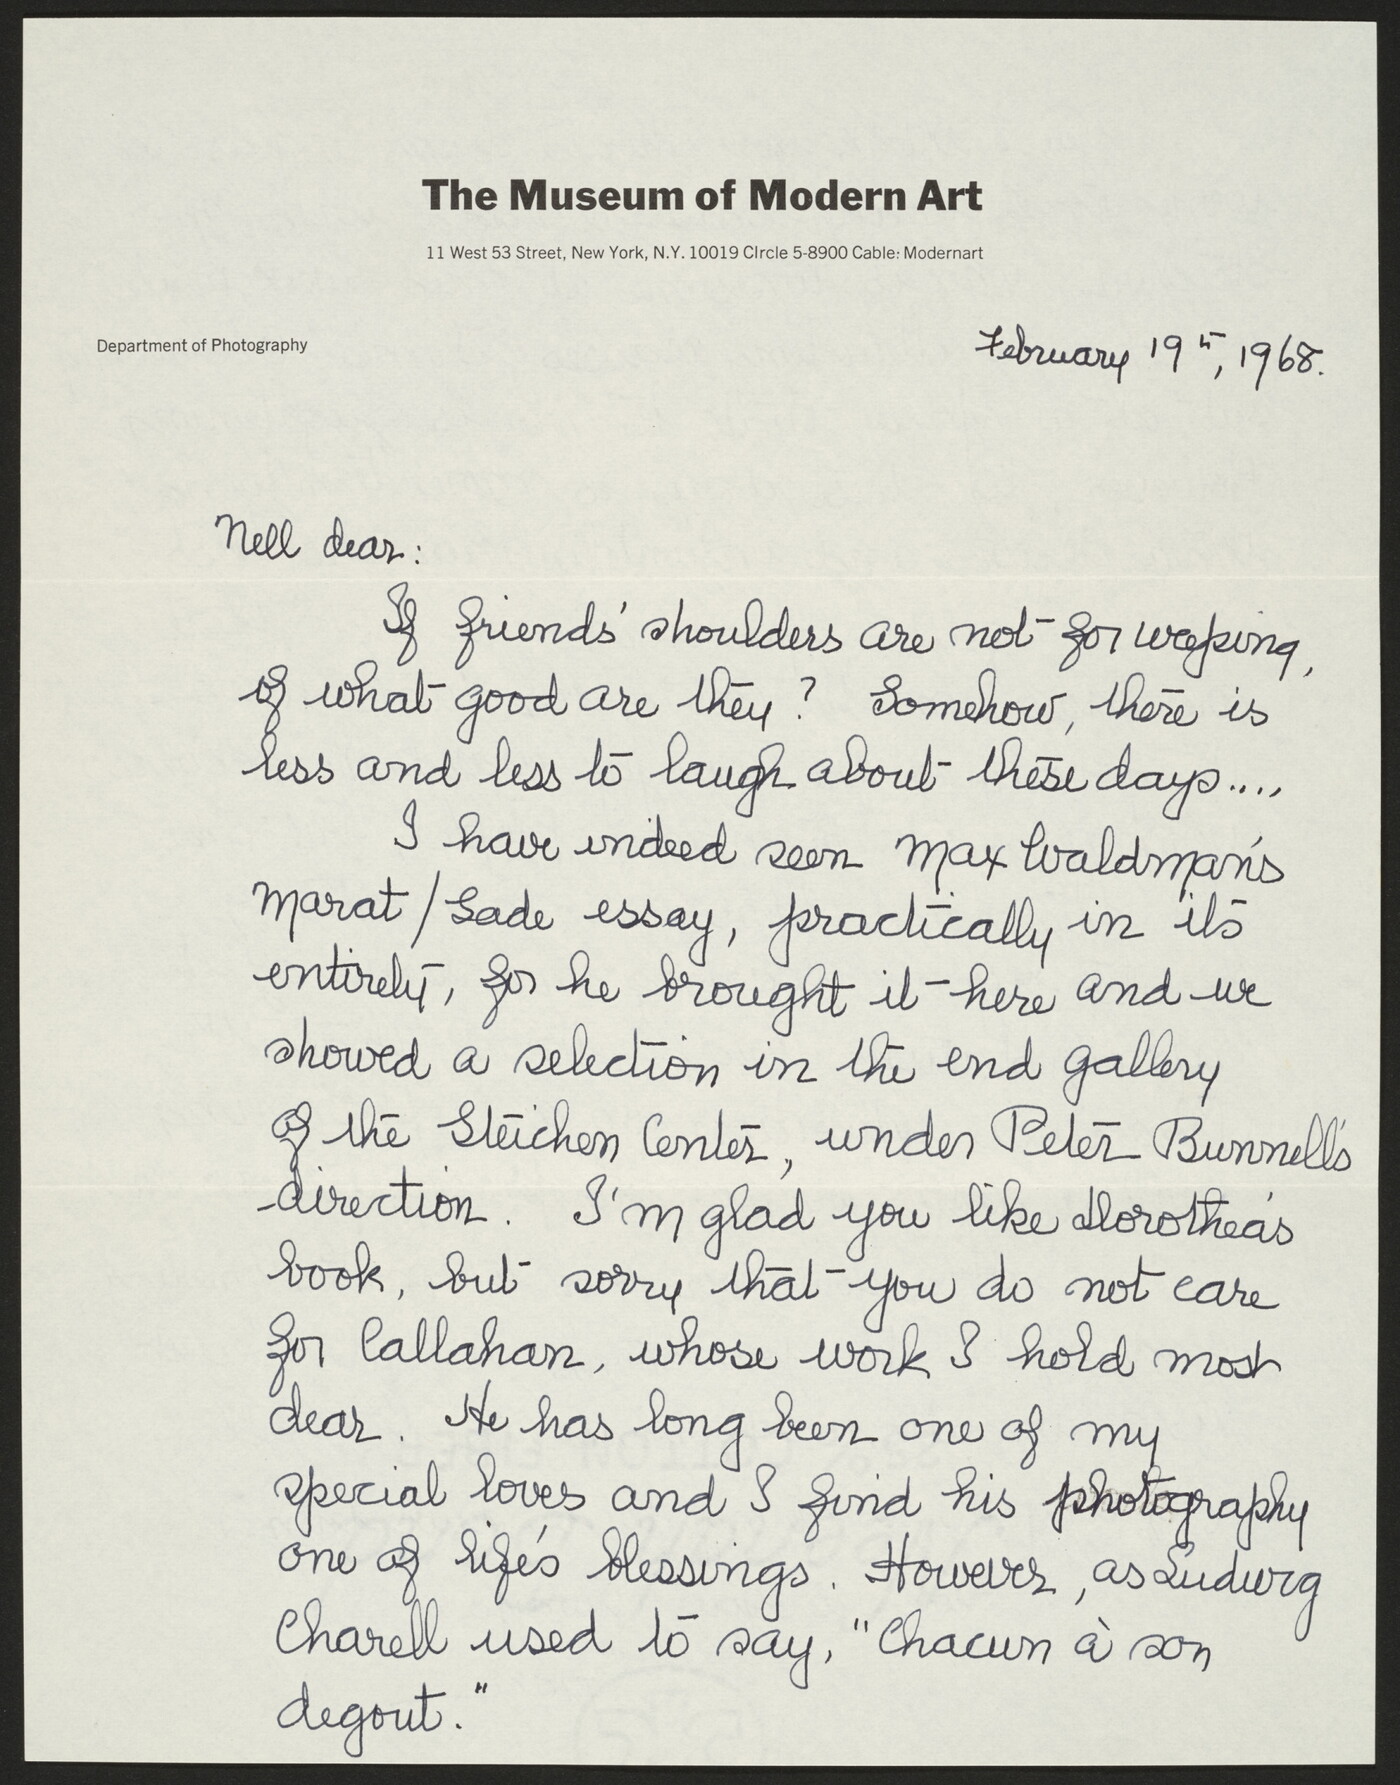 The Museum of Modern Art
11 West 53 Street, New York, N.Y. 10019 CIrcle 5-8900 Cable: Modernart
Department of Photography
February 19th, 1968.
Nell dear:
If friends' shoulders are not for weeping,
of what good are they? Somehow, there is
less and less to laugh about these days....
I have indeed seen Max Waldman's
Marat/Sade essay, practically in its
entirety, for he brought it here and we
showed a selection in the end gallery
of the Steichen Center, under Peter Bunnell's
direction. I'm glad you like Dorothea's
book, but sorry that you do not care
for Callahan, whose work I hold most
dear. He has long been one of my
special loves and I find his photography
one of life's blessings. However, as Ludwig
Charell used to say, "Chacun à son
degout."